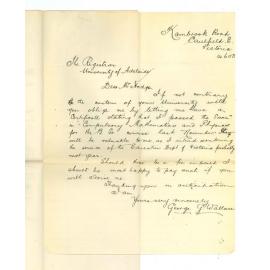 Kambrook Road
Caulfield. E.
Victoria
The Registrar
University of Adelaide
Dear Mr Hodge
If not contrary
to the custom of your University will
you oblige me by letting me have a
Certificate stating that I passed the Exam
in Compulsory Mathematics and Physics
for the B.Sc course last November. They
will be valuable to me as I intend
the service of the Education Dept of Victoria probably
next year.
Should there be a fee required I
shall be most happy to pay and if you
will
Thanking you in anticipation
I am
Yours very sincerely
George G. Wallace